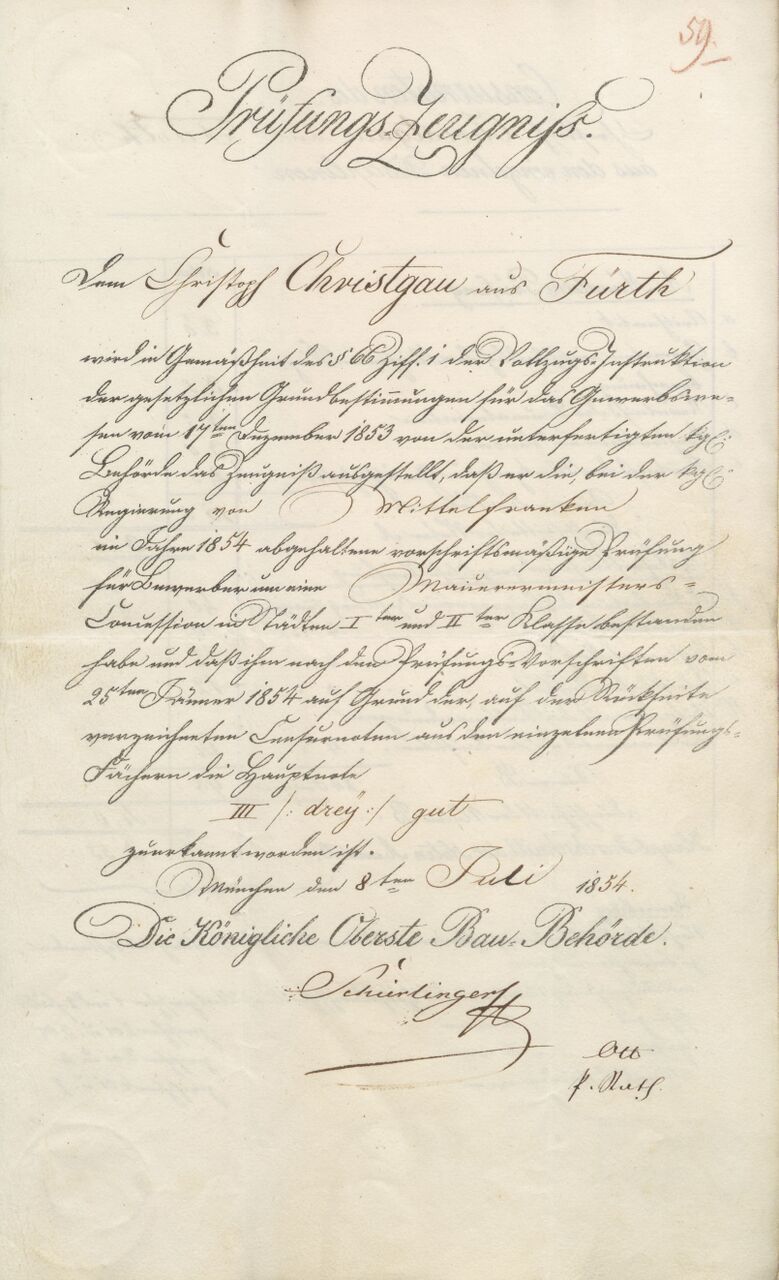 59.
Prüfungs-Zeugniss.
Dem Christoph Christgau aus Fürth
wird in Gemäßheit des § 66 Ziff. 1 der Vollzugs-Instruktion
der gesetzlichen Grundbestimmungen für das Gewerbswe-
sen vom 17ten Dezember 1853 von der unterfertigten kgl:
Behörde das Zeugniß ausgestellt, daß er die, bei der kgl:
Regierung von Mittelfranken
im Jahre 1854 abgehaltene vorschriftsmäßige Prüfung
für Bewerber um eine Mauerermeisters-
Concession in Städten Iter und IIter Klasse bestanden
habe und daß ihm nach den Prüfungs-Vorschriften vom
25ten Jänner 1854 auf Grund der, auf der Rückseite
verzeichneten Censurnoten aus den einzelnen Prüfungs-
Fächern die Hauptnote
III /: dreÿ :/ gut
zuerkannt worden ist.
München den 8ten Juli 1854.
Die Königliche Oberste Bau-Behörde.
Schierlinger
Ott